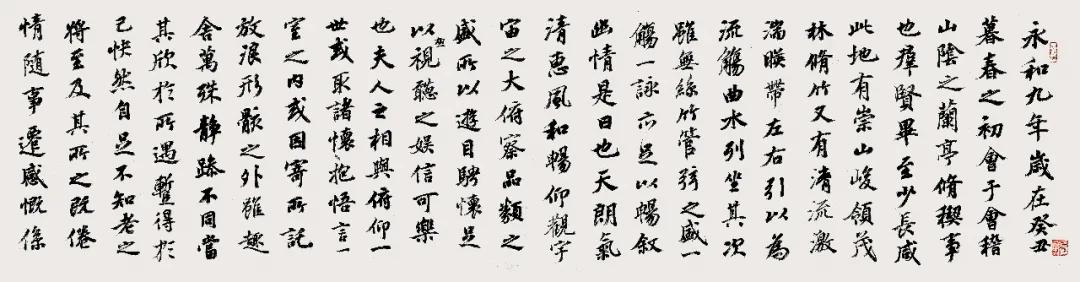 永和九年歲在癸丑
暮春之初會于會稽
山陰之蘭亭脩稧事
也羣賢畢至少長咸
此地有崇山峻領茂
林脩竹又有清流激
湍暎帶左右引以為
流觴曲水列坐其次
雖無絲竹管弦之盛一
觴一詠亦足以暢叙
幽情是日也天朗氣
清惠風和暢仰觀宇
宙之大俯察品類之
盛所以遊目騁懷足
以極視聽之娛信可樂
也夫人之相與俯仰一
世或取諸懷抱悟言一
室之內或因寄所託
放浪形骸之外雖趣
舍萬殊靜躁不同當
其欣於所遇暫得於
己快然自足不知老之
將至及其所之既倦
情隨事遷感慨係